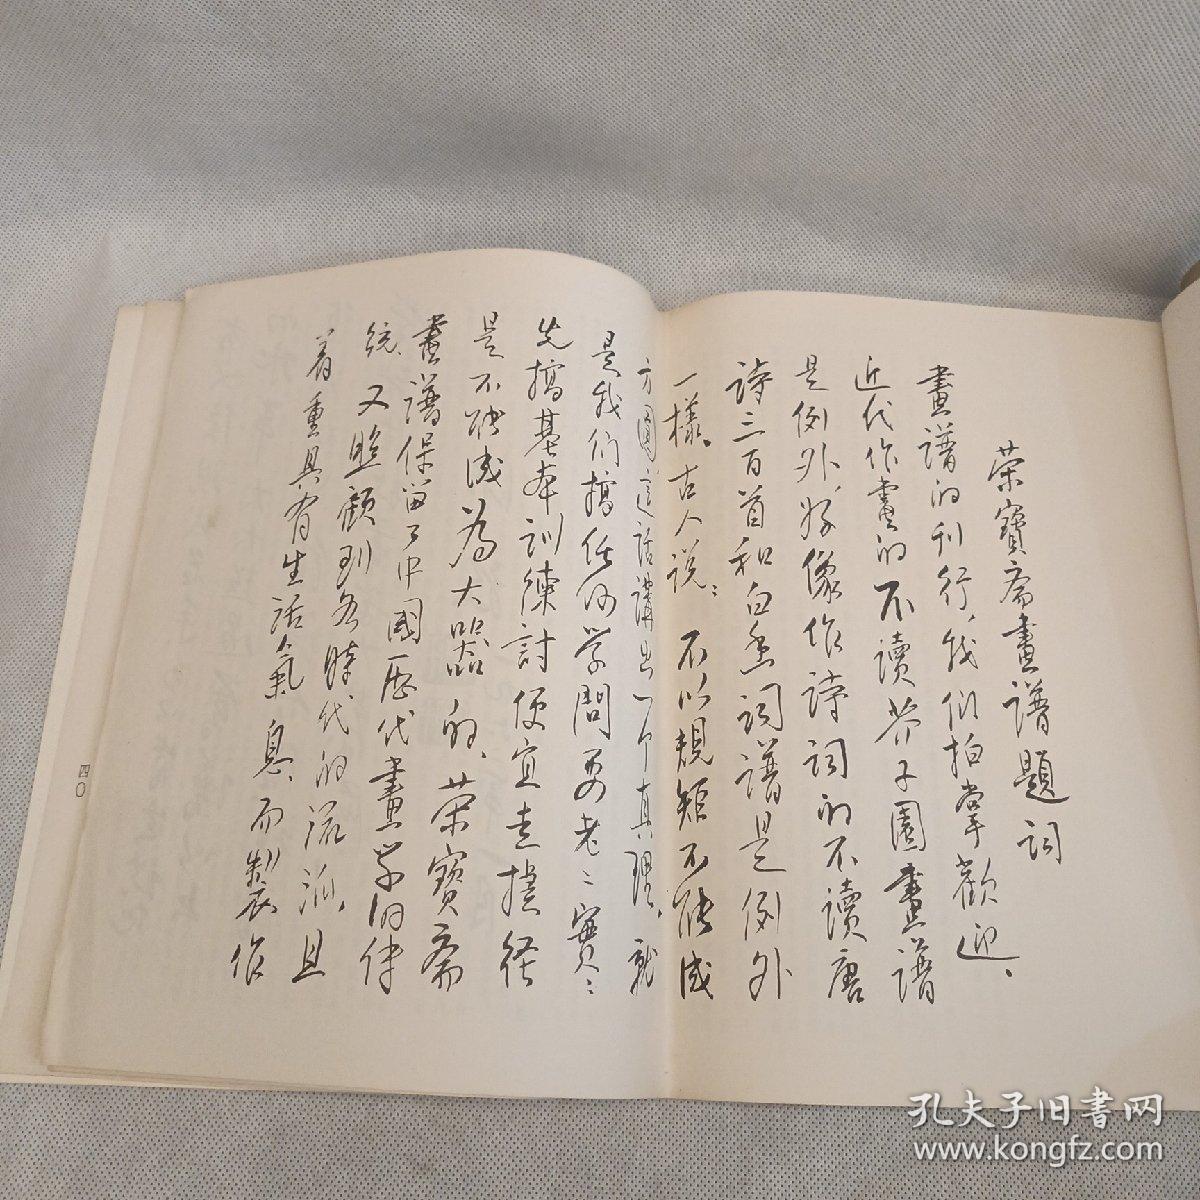 荣寶斋畫譜題詞
畫譜的刊行，我们拍掌歡迎、
近代作畫的不讀芥子園畫譜
是例外，好像作詩詞的不讀唐
詩三百首和白香詞譜是例外
一樣。古人说：不以規矩不能成
方圓這话講出一个真理，就
是我们搞任何学問要老老實實
先搞基本訓練討便宜走捷径
是不能成為大器的。荣寶斋
畫譜保留了中國歷代畫学的传
统，又照顧到各時代的流派，且
着重具有生活氣息，而製作
四〇
孔夫子旧書网
www.kongfz.com